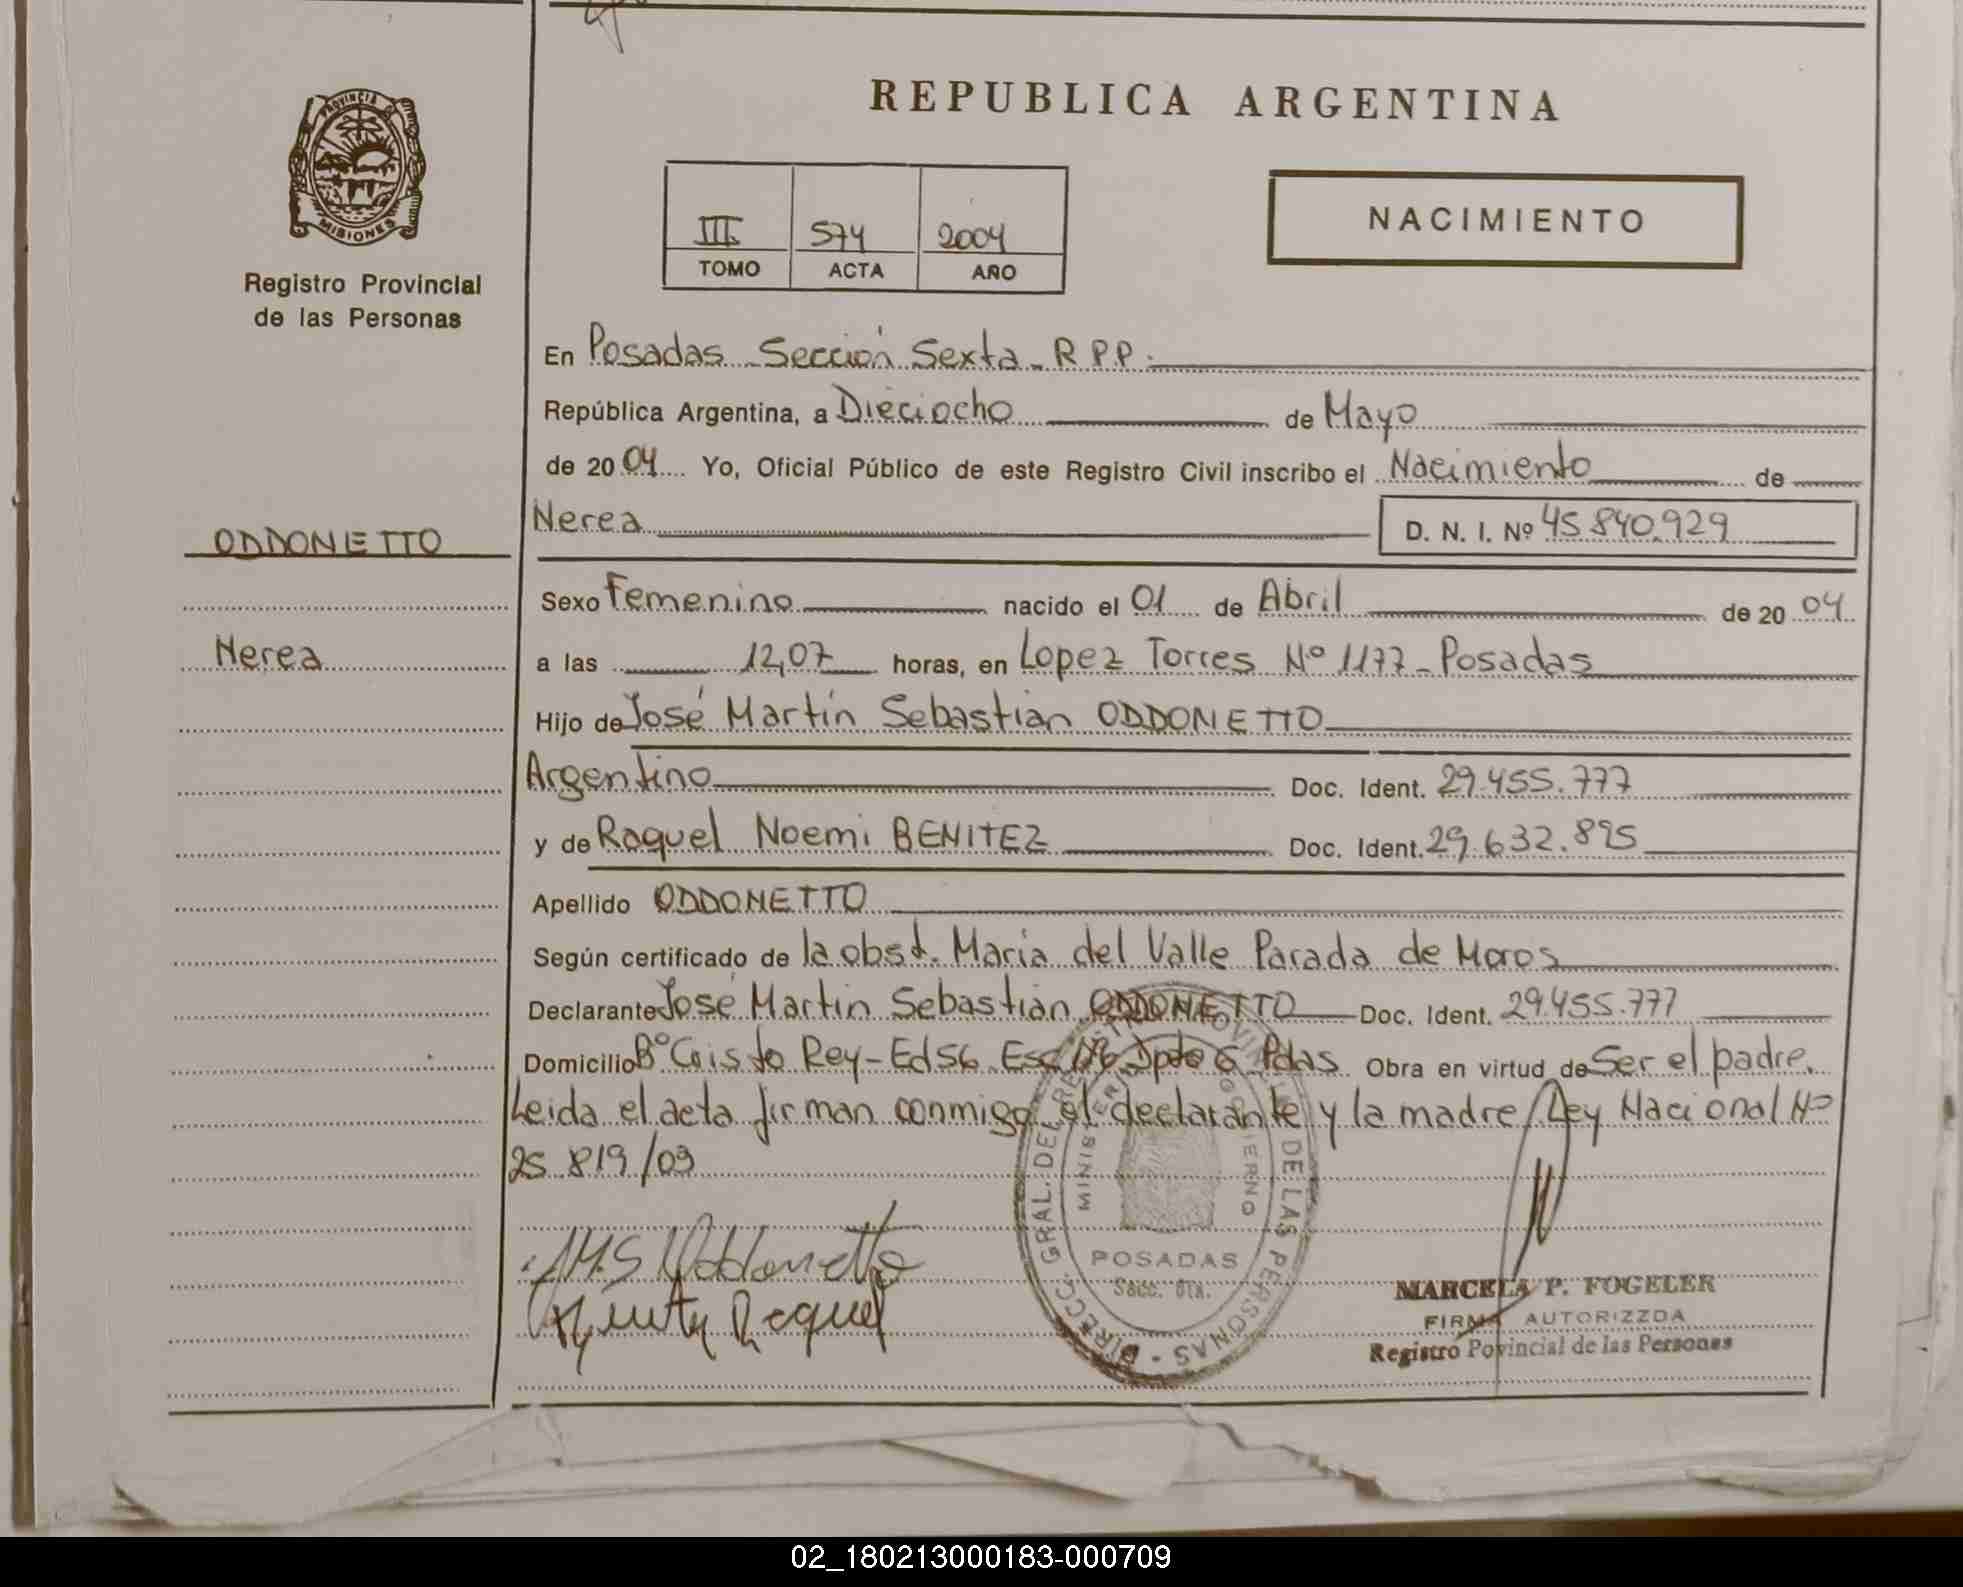 REPUBLICA ARGENTINA
PROVINCIA DE
MISIONES
Registro Provincial
de las Personas
III 574 2004
TOMO ACTA AÑO
NACIMIENTO
En Posadas - Sección Sexta - R P P.
República Argentina, a Dieciocho de Mayo
de 20 04 Yo, Oficial Público de este Registro Civil inscribo el Nacimiento de
ODDONETTO
Nerea D. N. I. Nº 45 840.929
Sexo Femenino nacido el 01 de Abril de 20 04
Nerea
a las 12,07 horas, en Lopez Torres Nº 1177 - Posadas
Hijo de José Martín Sebastian ODDONETTO
Argentino Doc. Ident. 29.455.777
y de Raquel Noemi BENITEZ Doc. Ident. 29.632.895
Apellido ODDONETTO
Según certificado de la obst. Maria del Valle Parada de Moros
Declarante José Martin Sebastián ODDONETTO Doc. Ident. 29.455.777
Domicilio Bº Cristo Rey - Ed 56 Dpto 6 Pdas Obra en virtud de Ser el padre.
Leida el acta firman conmigo el declarante y la madre/Ley Nacional Nº
25 819/03
J.M.S Oddonetto
Raquel
DIRECC. GRAL. DEL REGISTRO PROVINCIAL DE LAS PERSONAS
MINISTERIO GOBIERNO
POSADAS
Secc. 6ta.
MARCELA P. FOGELER
FIRMA AUTORIZZDA
Registro Povincial de las Personas
02_180213000183-000709